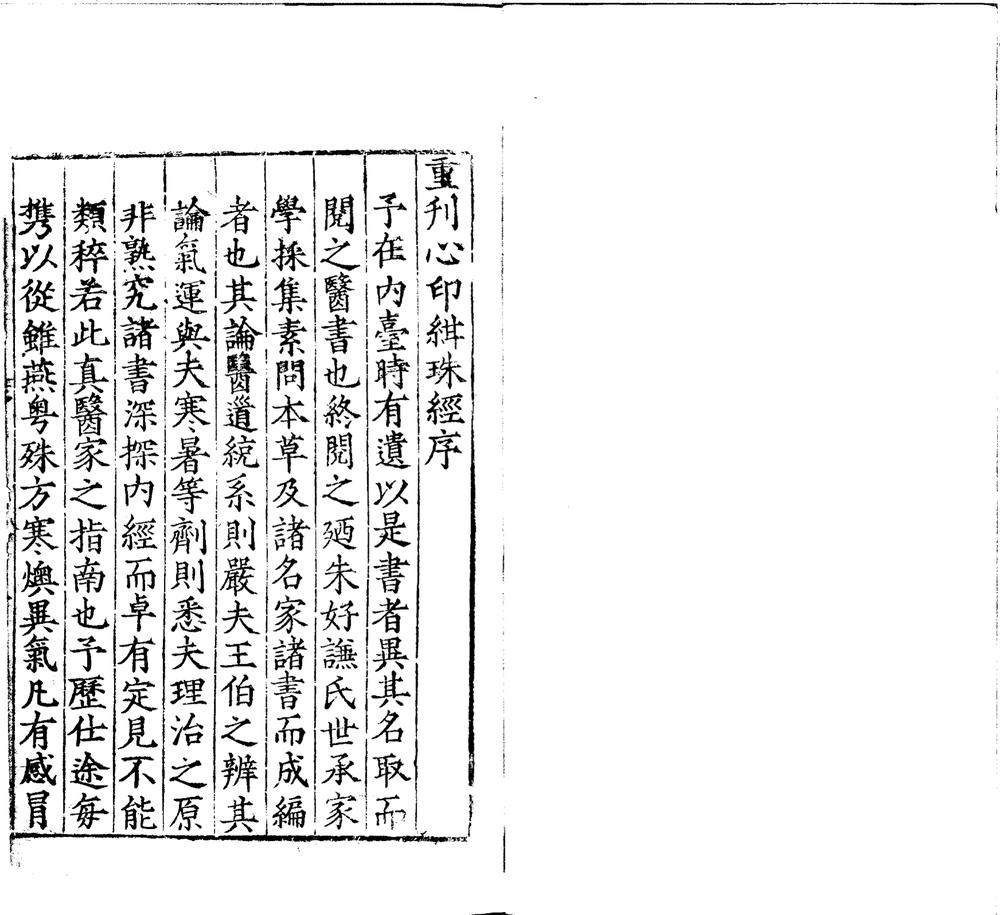 重刊心印紺珠經序
予在內臺時有遺以是書者異其名取而
閱之醫書也終閱之廼朱好謙氏世承家
學採集素問本草及諸名家諸書而成編
者也其論醫道統系則嚴夫王伯之辨其
論氣運與夫寒暑等劑則悉夫理治之原
非熟究諸書深探內經而卓有定見不能
類稡若此真醫家之指南也予歷仕途每
攜以從雖燕粵殊方寒燠異氣凡有感冒